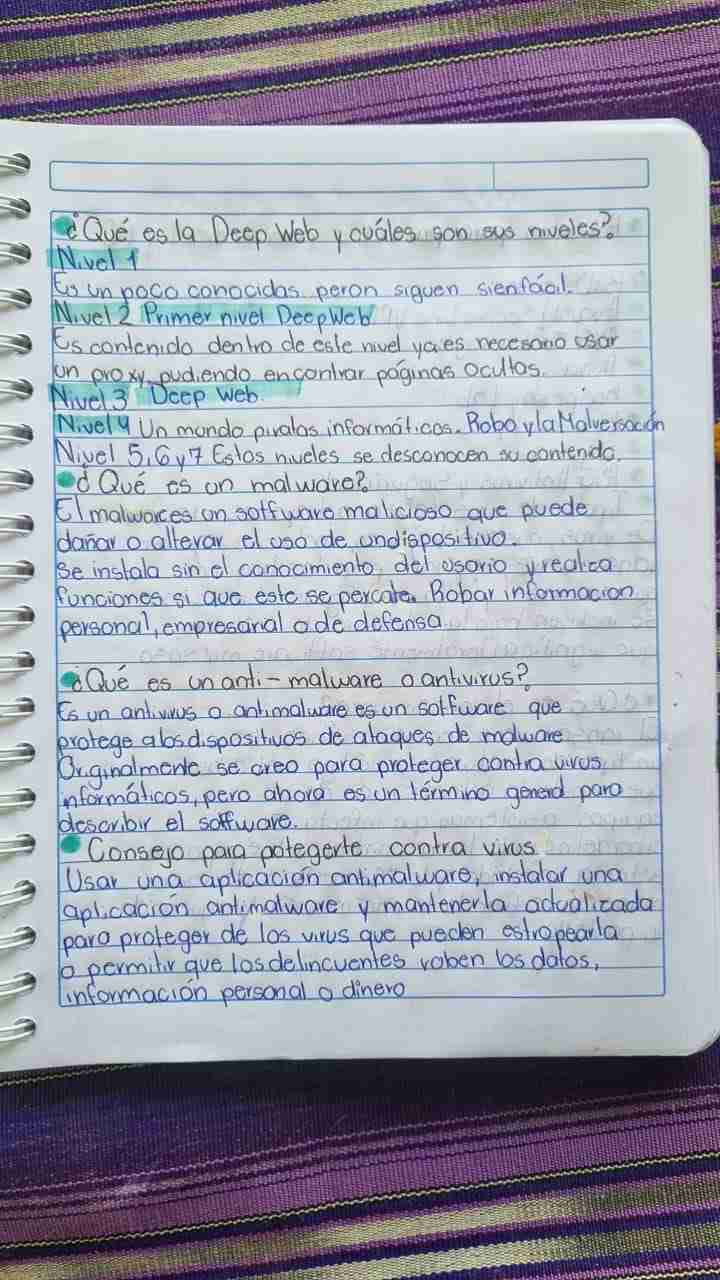 ¿Qué es la Deep Web y cuáles son sus niveles?
Nivel 1
Es un poco conocidas peron siguen sienfácil.
Nivel 2 Primer nivel DeepWeb
Es contenido dentro de este nivel ya es necesario usar
un proxy, pudiendo encontrar páginas ocultas.
Nivel 3 Deep Web.
Nivel 4 Un mundo piratas informáticos. Robo y la Malversación
Nivel 5,6 y 7 Estos niveles se desconocen su contenido.
¿Qué es un malware?
El malware es un software malicioso que puede
dañar o alterar el uso de un dispositivo.
Se instala sin el conocimiento del usorio y realiza
funciones si que este se percate. Robar informacion
personal, empresarial o de defensa.
¿Qué es un anti-malware o antivirus?
Es un antivirus o antimalware es un software que
protege a los dispositivos de ataques de malware
Originalmente se creo para proteger contra virus
informáticos, pero ahora es un término general para
describir el software.
Consejo para potegerte contra virus
Usar una aplicación antimalware, instalar una
aplicación antimalware y mantenerla actualizada
para proteger de los virus que pueden estropearla
o permitir que los delincuentes roben los datos,
información personal o dinero